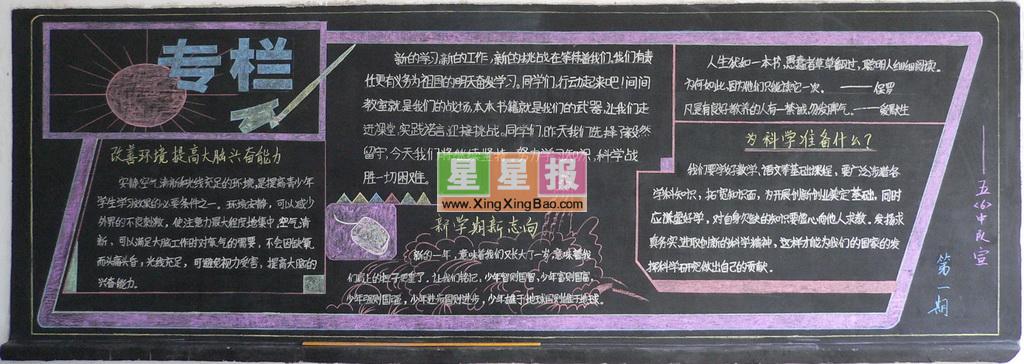 专栏
改善环境 提高大脑兴奋能力
安静、空气清新和光线充足的环境,是提高青少年
学生学习效果的必要条件之一。环境安静,可以减少
外界的不良刺激,使注意力最大程度地集中,空气清
新,可以满足大脑工作时对氧气的需要,不会因缺氧
而头痛头昏,光线充足,可避免视力受害,提高大脑的
兴奋能力。
新的学习,新的工作,新的挑战在等待着我们,我们有责
任更有义务为祖国的明天奋发学习。同学们,行动起来吧!间间
教室就是我们的战场,本本书籍就是我们的武器,让我们走
进课堂,实践诺言,迎接挑战。同学们,昨天我们选择毅然
留守,今天我们将继续坚持,努力学习知识,科学战
胜一切困难。
星星报
www.XingXingBao.com
新学期新志向
新的一年,意味着我们又长大了一岁,意味着我
们肩上的担子更重了。让我们铭记,少年智则国智,少年富则国富,
少年强则国强,少年进步则国进步,少年雄于地球则国雄于地球。
人生犹如一本书,愚蠢者草草翻过,聪明人细细阅读。
为何如此,因为他们只能读它一次。——保罗
凡是有良好教养的人有一禁诫:勿发脾气。——爱默生
为科学准备什么?
我们要学好数学、语文等基础课程,要广泛涉猎各
学科知识,拓宽知识面,为开展创新创业奠定基础,同时
应谦虚好学,对自身欠缺的知识要虚心向他人求教,发扬求
真务实、进取创新的科学精神,这样才能为我们的国家的发
展科学研究做出自己的贡献。
——五(6)中队宣
第一期